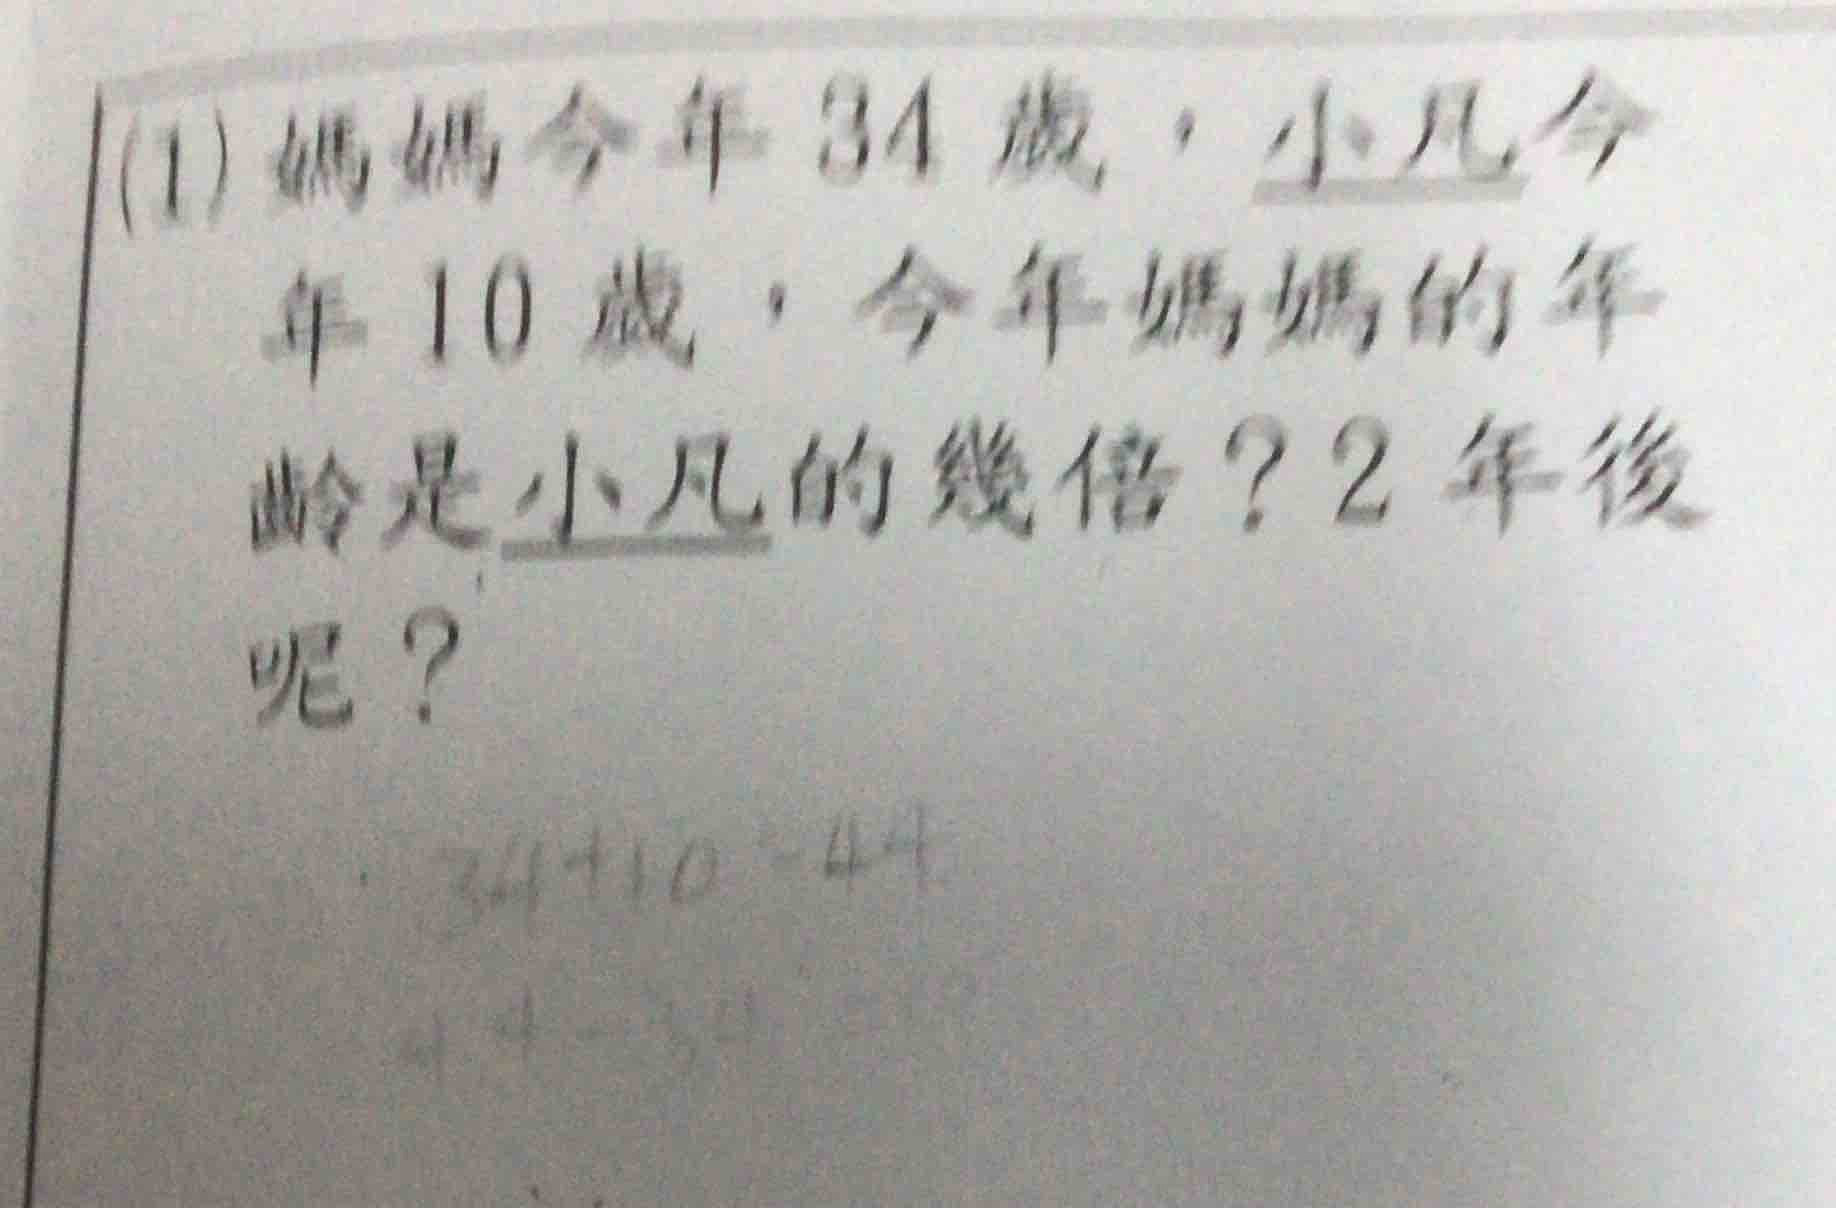 (1) 媽媽今年 34 歲，小凡今
年 10 歲，今年媽媽的年
齡是小凡的幾倍？2 年後
呢？
34+10=44
44-34=10